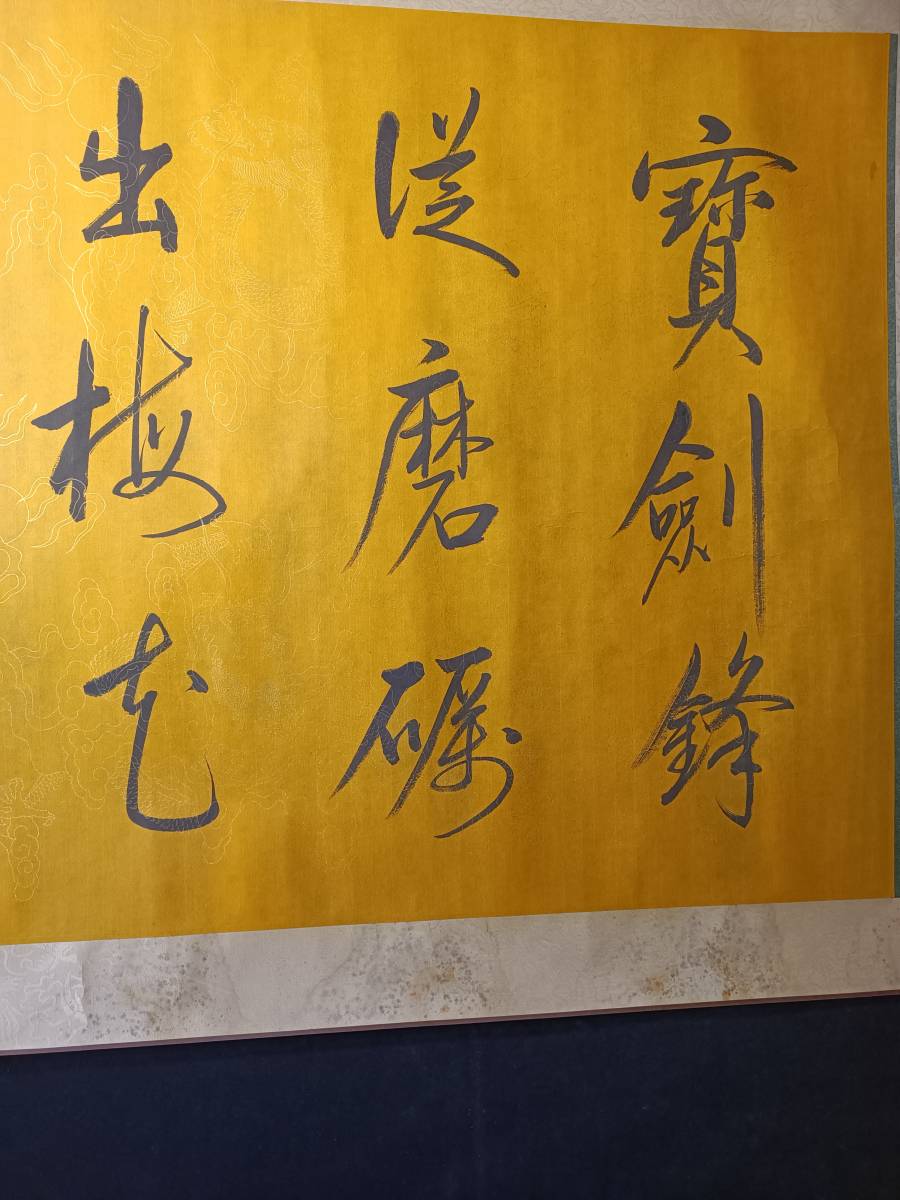 寶劍鋒
從磨礪
出梅花